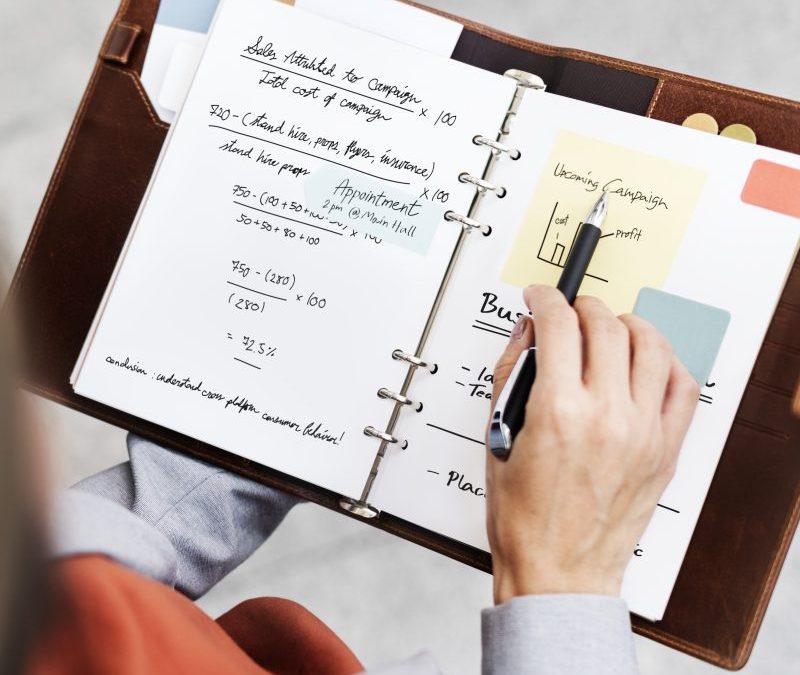 Sales Attributed to Campaign
Total cost of campaign
× 100
720 - (stand hire, props, flyers, insurance)
stand hire props
× 100
Appointment
2pm @ Main Hall
750 - (100 + 50 +
50 + 50 + 80 + 100
× 100
750 - (280)
(280)
× 100
= 72.5%
conclusion : understand cross platform consumer behavior!
Upcoming Campaign
cost
profit
Bus
-
- Tea
- Plac